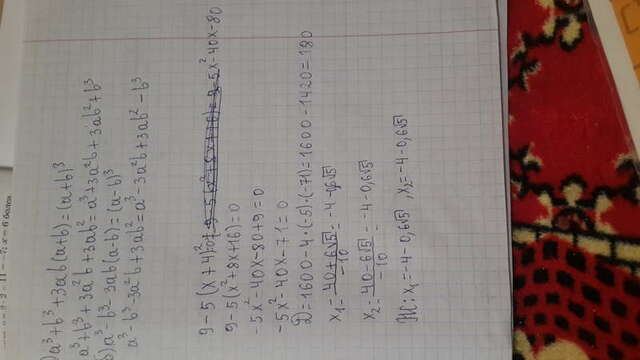 9-2-11=-7; x=6 болса
) a³+b³+3ab(a+b)=(a+b)³
a³+b³+3a²b+3ab²=a³+3a²b+3ab²+b³
б) a³-b³-3ab(a-b)=(a-b)³
a³-b³-3a²b+3ab²=a³-3a²b+3ab²-b³
9-5(x+4)²=0 9-5(x²+8x+16)=9-5x²-40x-80
9-5(x²+8x+16)=0
-5x²-40x-80+9=0
-5x²-40x-71=0
D=1600-4·(-5)·(-71)=1600-1420=180
x₁=(40+6√5)/(-10)=-4-0,6√5
x₂=(40-6√5)/(-10)=-4-0,6√5
Ж: x₁=-4-0,6√5, x₂=-4-0,6√5